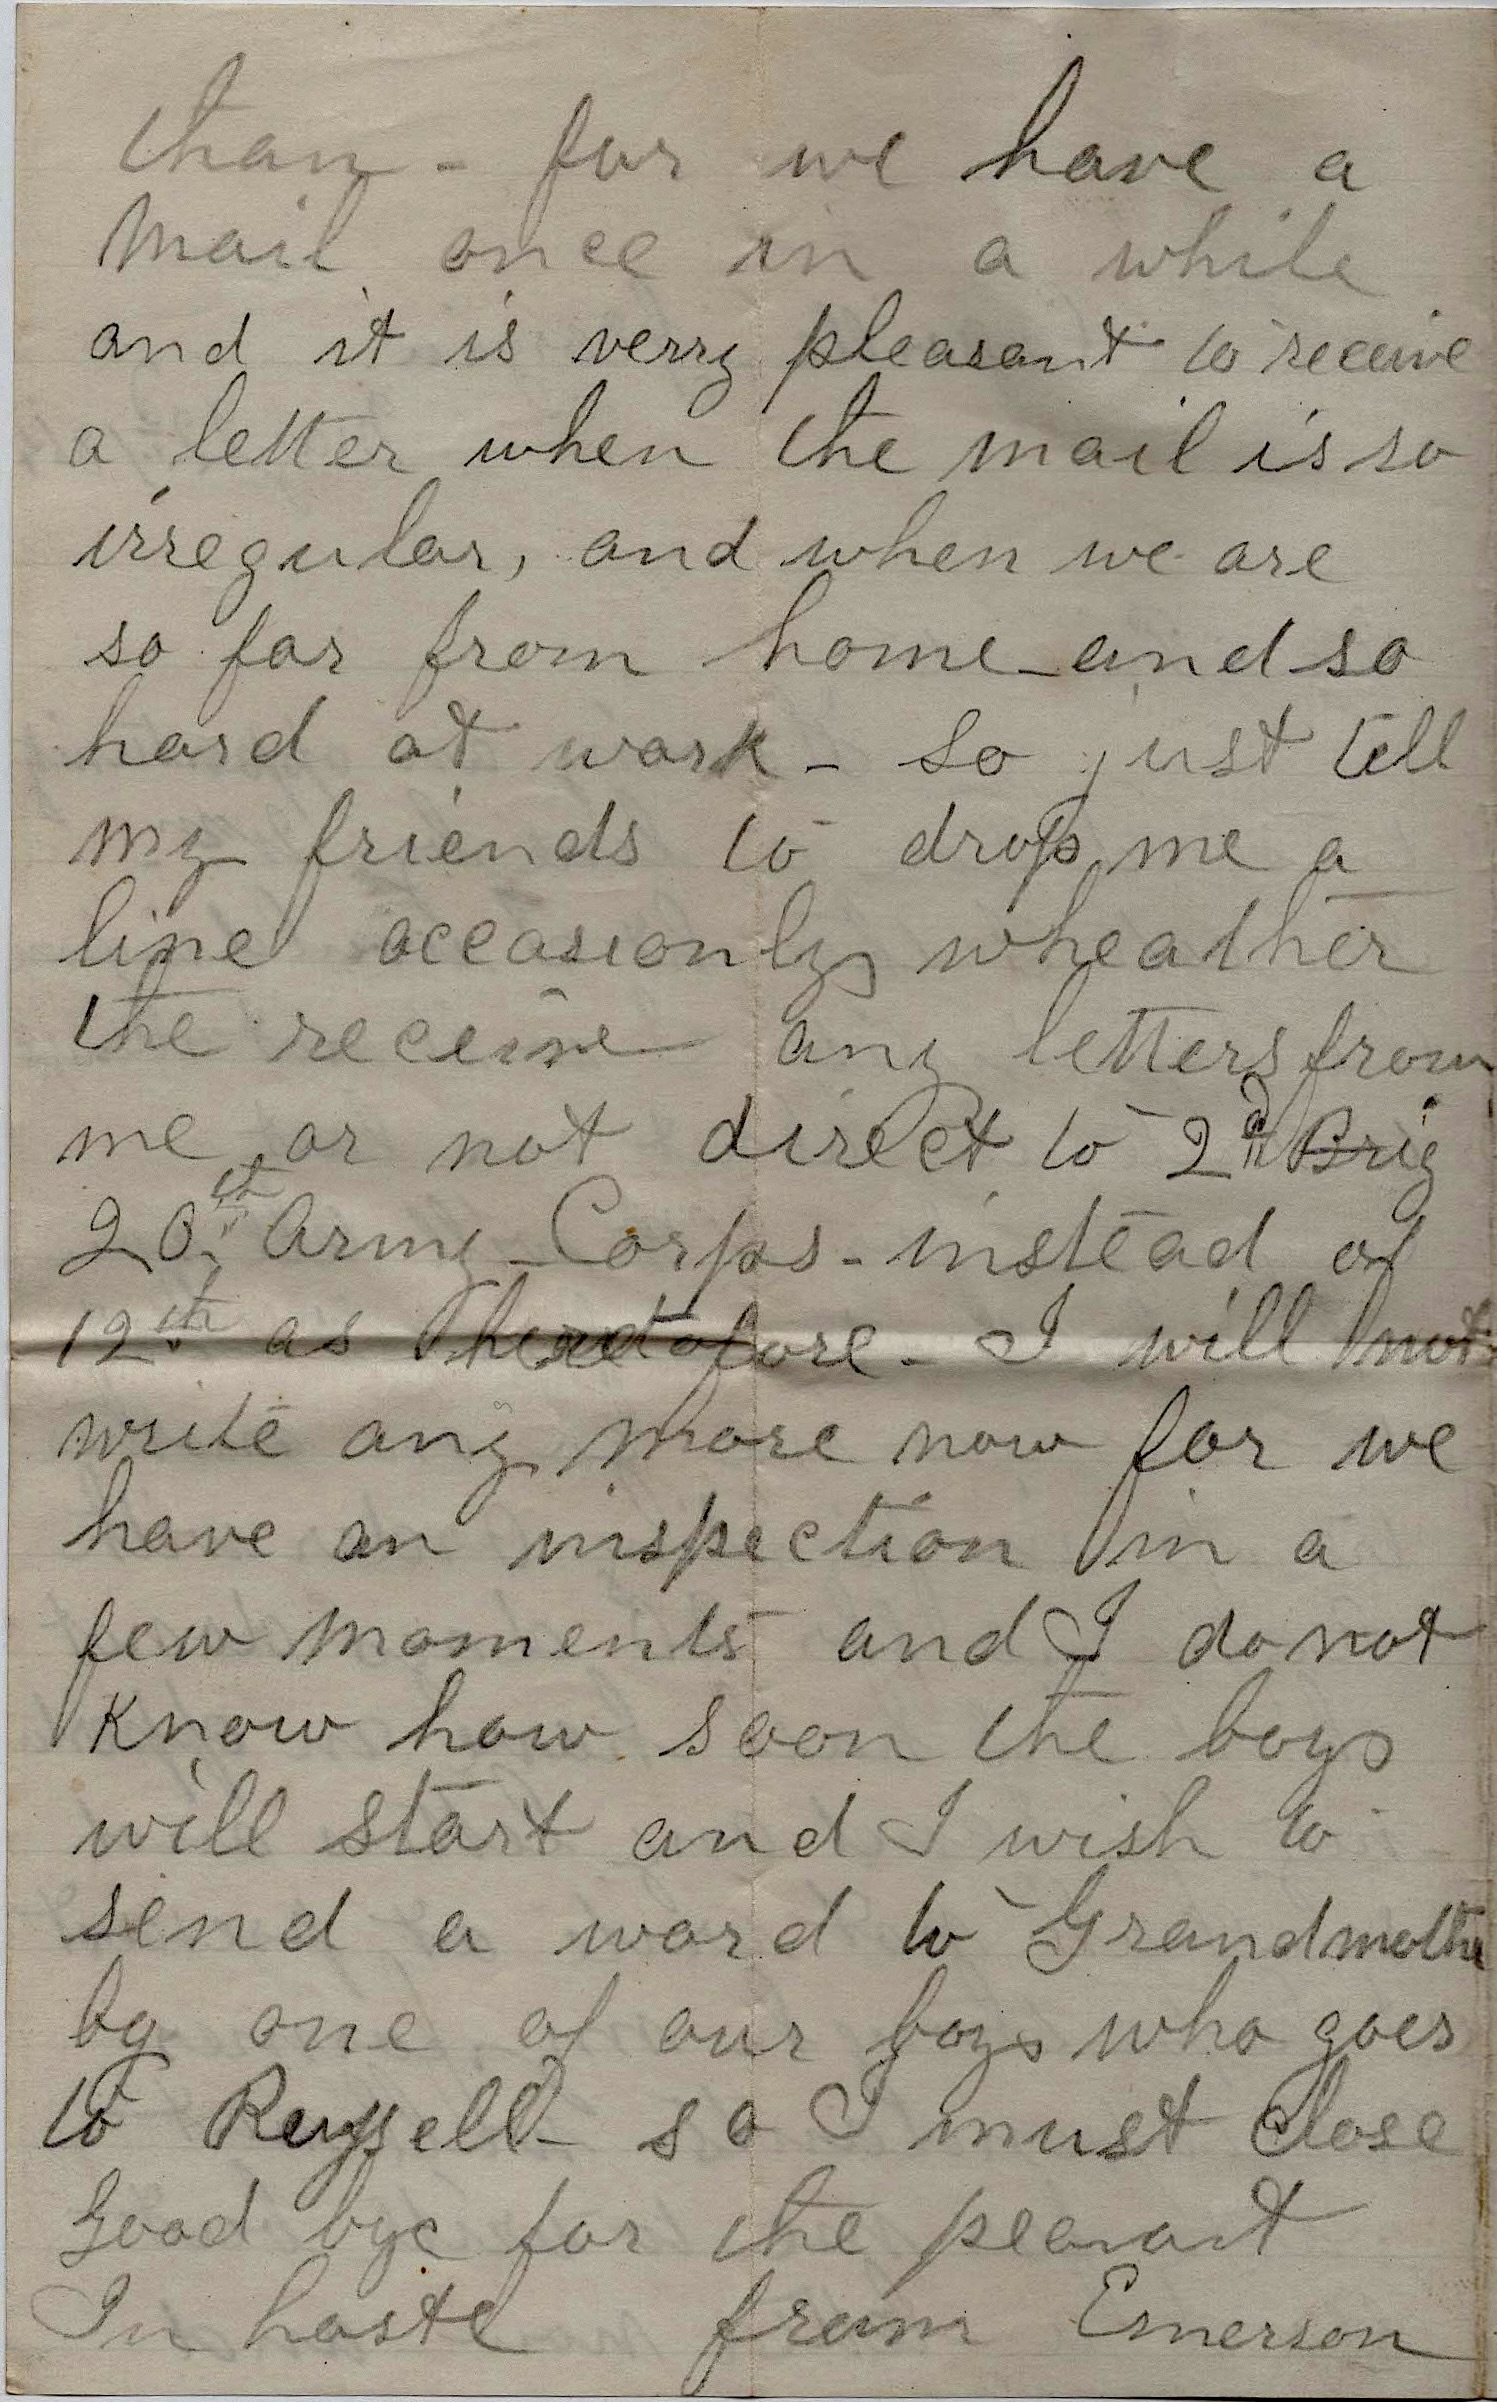 than - for we have a
mail once in a while
and it is verry pleasant to receive
a letter when the mail is so
irregular, and when we are
so far from home - and so
hard at work - so just tell
my friends to drop me a
line occasionly wheather
the receive any letters from
me or not direct to 2nd Brig
20th Army - Corps - instead of
12th as heretofore - I will not
write any more now for we
have an inspection in a
few moments and I do not
know how soon the boys
will start and I wish to
send a word to Grandmother
by one of our boys who goes
to Russell - so I must close
Good bye for the
In haste from Emerson